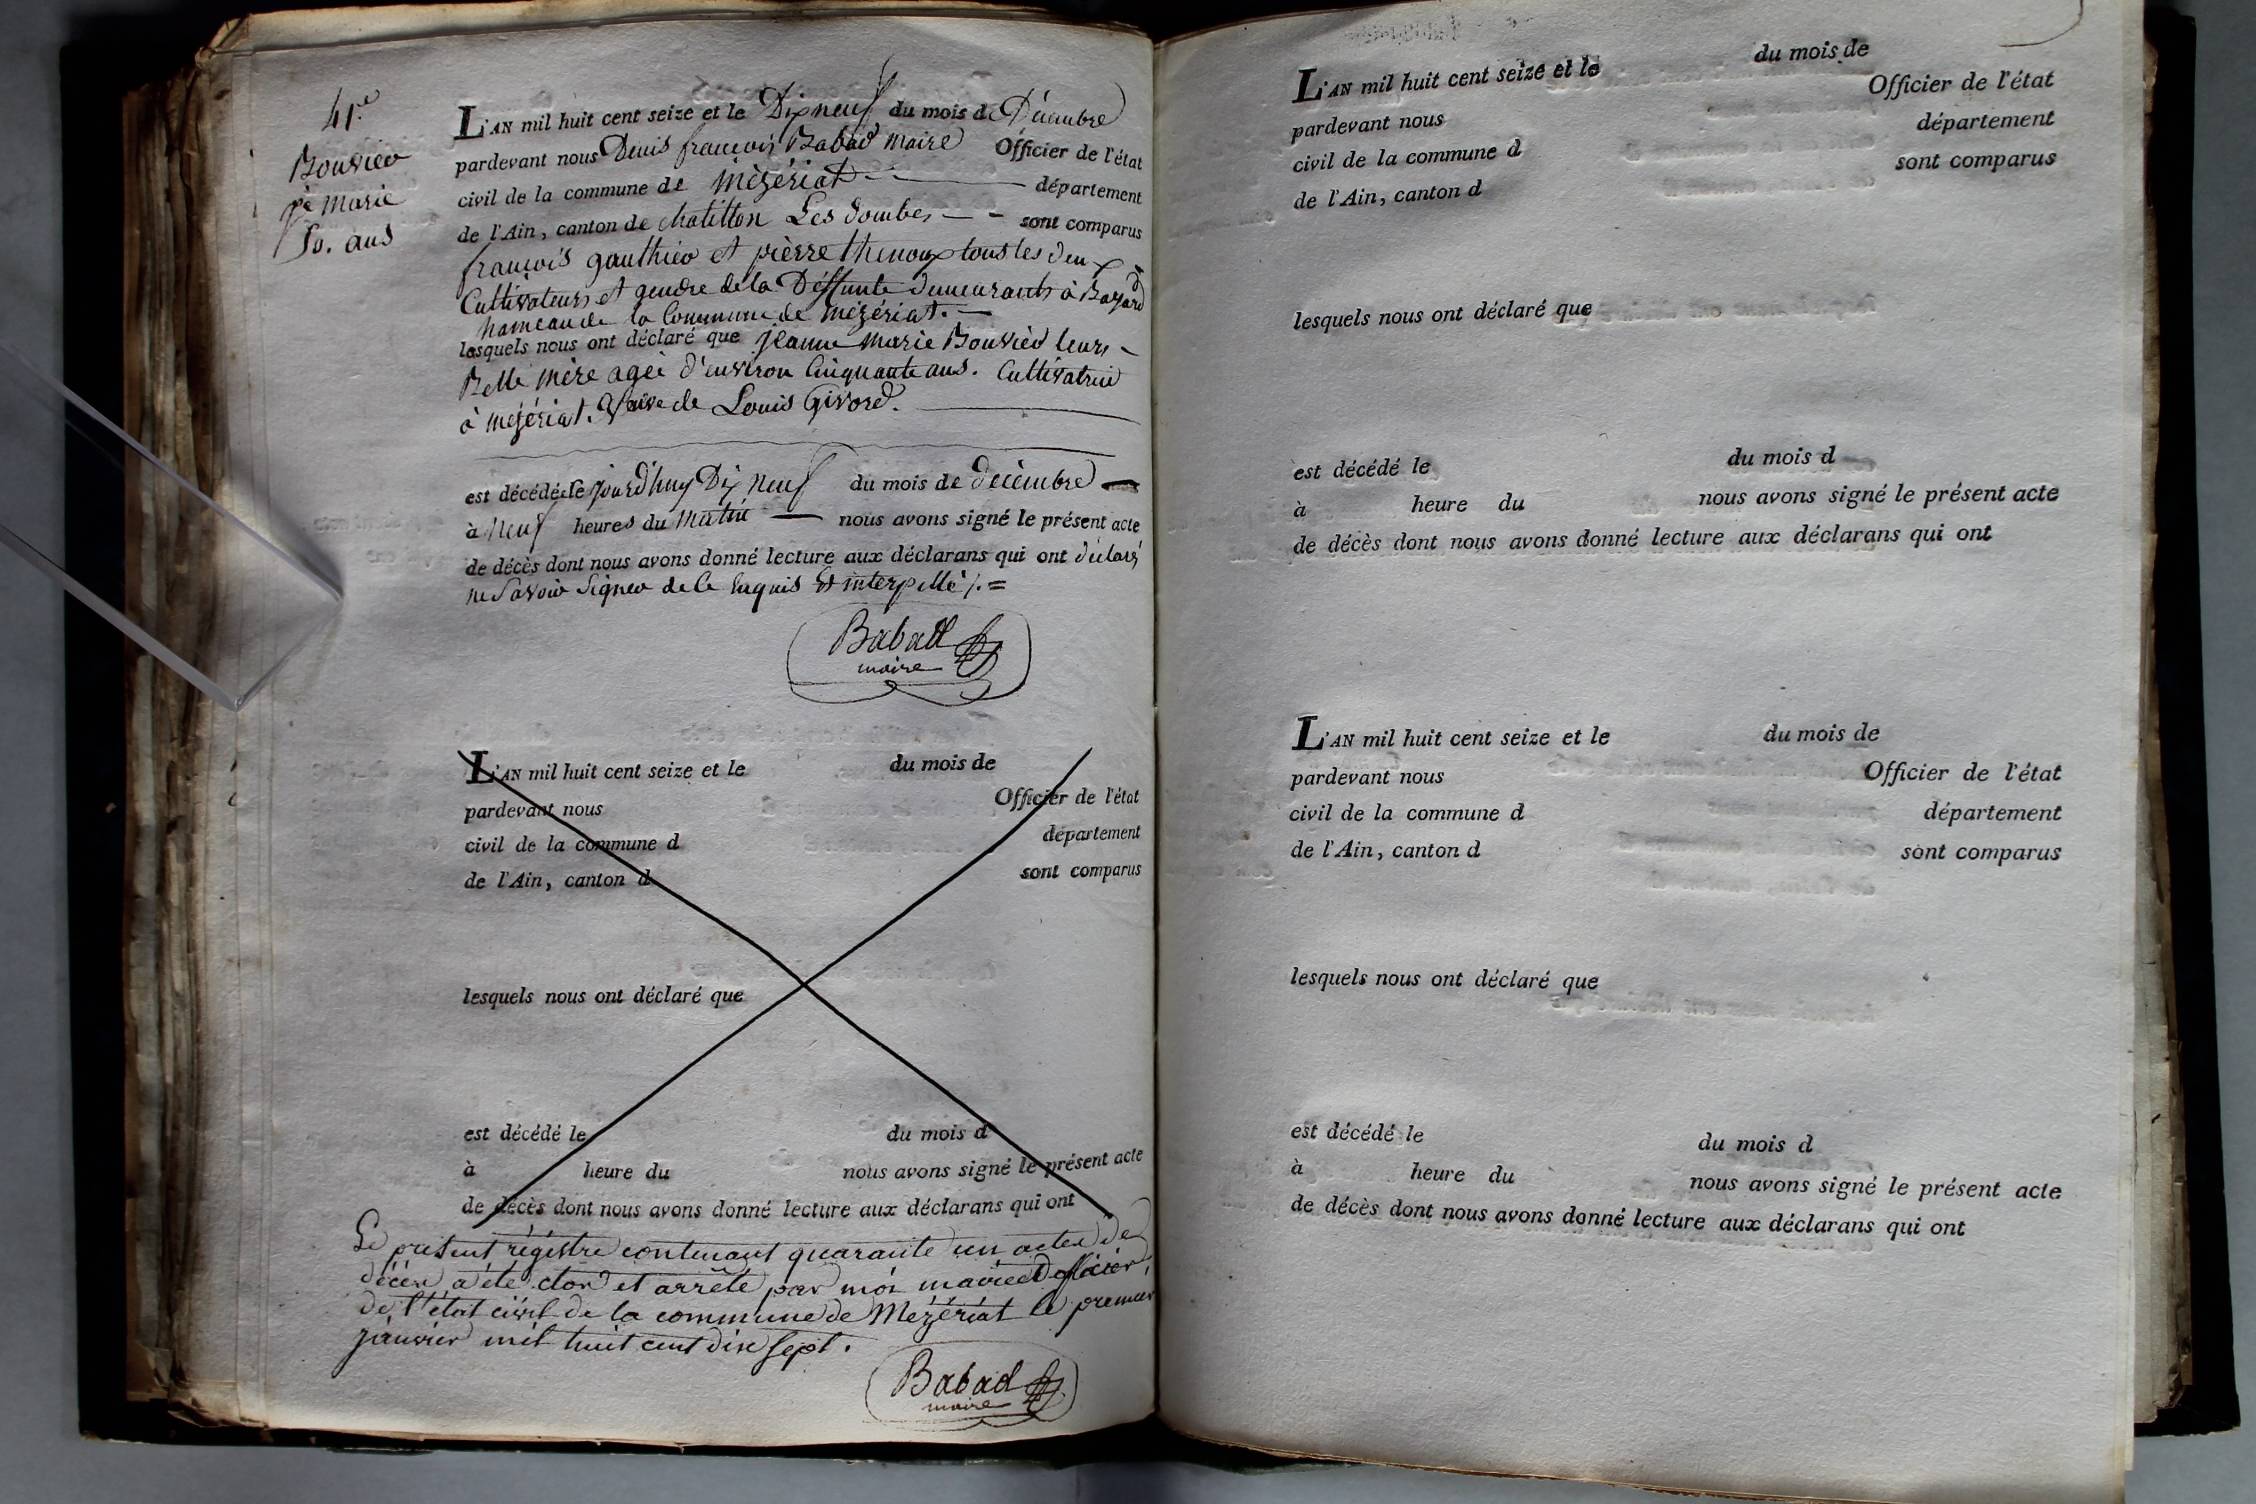 41.e
Bouvier
je Marie
50. ans
L'AN mil huit cent seize et le Dix neuf du mois de Décembre
pardevant nous Denis françois Babad Maire Officier de l'état
civil de la commune de Mézériat département
de l'Ain, canton de Chatillon Les Dombes sont comparus
françois gauthier et pièrre thenoux tous les deux
Cultivateurs et gendre de la Déffunte demeurants à Bayard
hameau de la Commune de Mézériat.
lesquels nous ont déclaré que jeanne Marie Bouvier leurs
Belle Mère agée d'environ Cinquante ans. Cultivatrice
à Mézériat. Veuve de Louis Givord.
est décédée le jourd'huy Dix neuf du mois de decèmbre
à Neuf heures du Matin nous avons signé le présent acte
de décès dont nous avons donné lecture aux déclarans qui ont déclaré
ne Savoir Signer de ce Enquis Et interpellé ⁒ =
Babad
maire
L'AN mil huit cent seize et le du mois de
pardevant nous Officier de l'état
civil de la commune d département
de l'Ain, canton d sont comparus
lesquels nous ont déclaré que
est décédé le du mois d
à heure du nous avons signé le présent acte
de décès dont nous avons donné lecture aux déclarans qui ont
Le présent régistre contenant quarante un actes de
décès a été clos et arrêté par moi maire officier
de l'état civil de la commune de Mézériat le premier
janvier mil huit cent dix sept.
Babad
maire
L'AN mil huit cent seize et le du mois de
pardevant nous Officier de l'état
civil de la commune d département
de l'Ain, canton d sont comparus
lesquels nous ont déclaré que
est décédé le du mois d
à heure du nous avons signé le présent acte
de décès dont nous avons donné lecture aux déclarans qui ont
L'AN mil huit cent seize et le du mois de
pardevant nous Officier de l'état
civil de la commune d département
de l'Ain, canton d sont comparus
lesquels nous ont déclaré que
est décédé le du mois d
à heure du nous avons signé le présent acte
de décès dont nous avons donné lecture aux déclarans qui ont